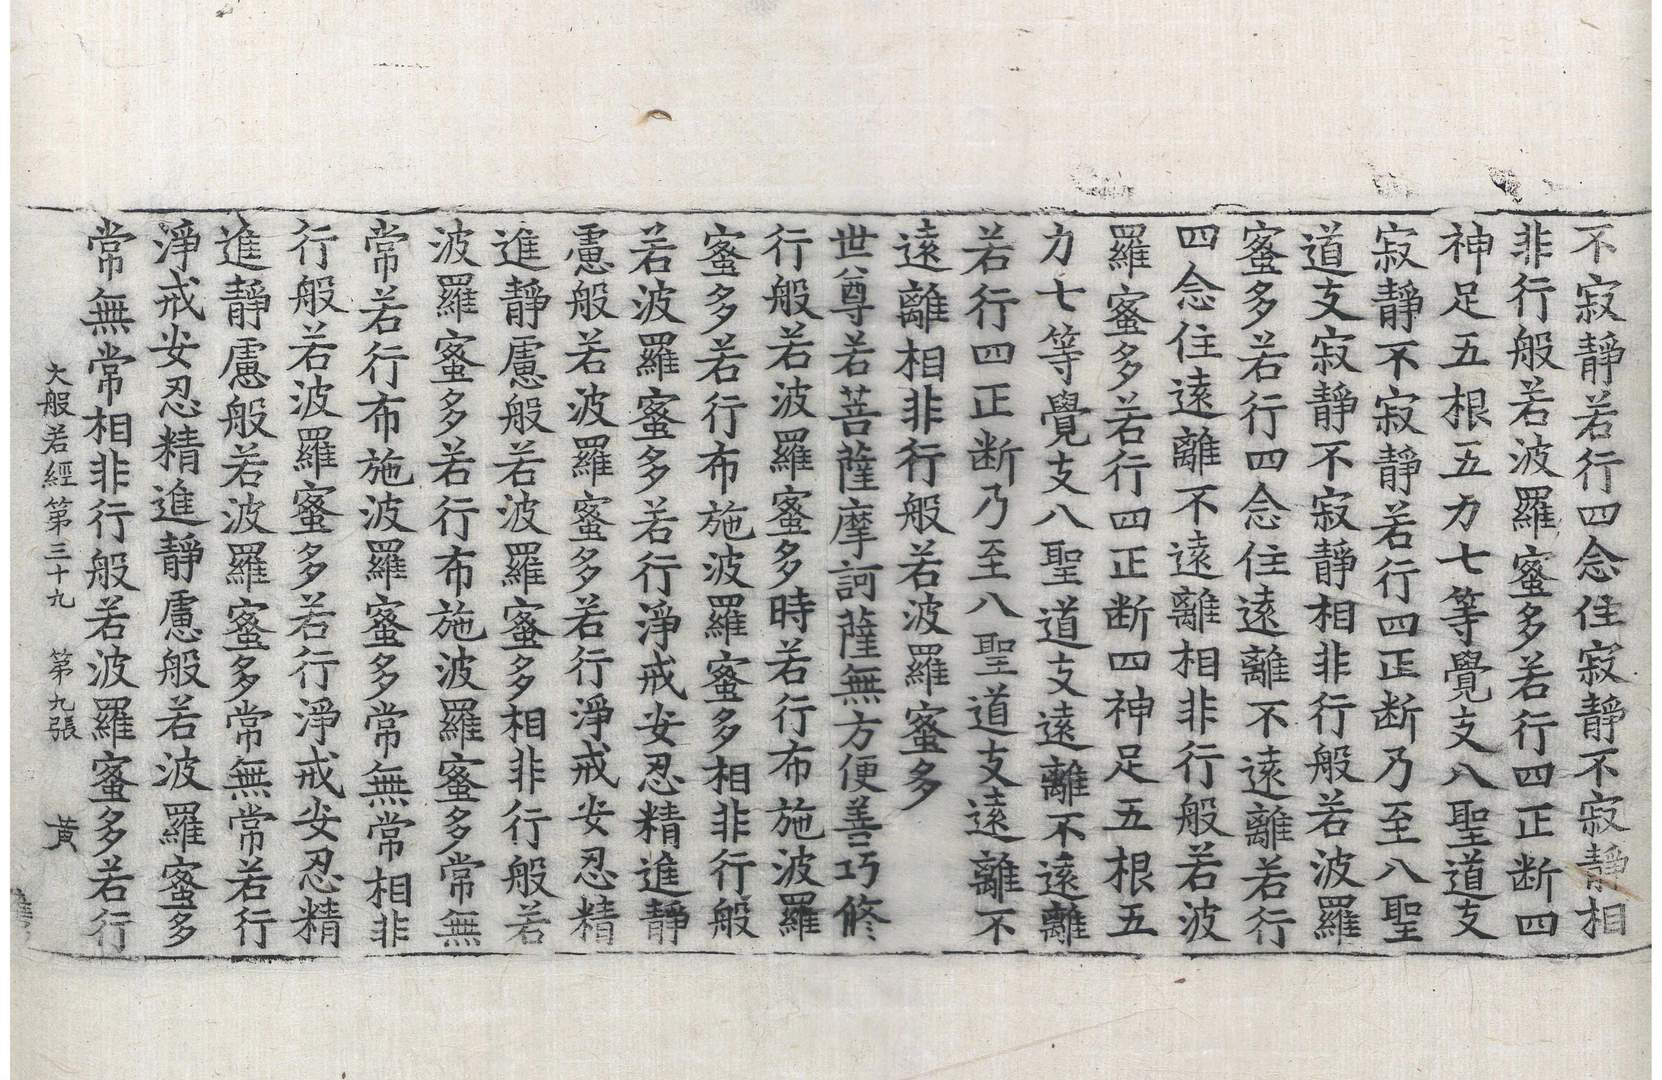 不寂靜若行四念住寂靜不寂靜相
非行般若波羅蜜多若行四正断四
神足五根五力七等覺支八聖道支
寂靜不寂靜若行四正断乃至八聖
道支寂靜不寂靜相非行般若波羅
蜜多若行四念住遠離不遠離若行
四念住遠離不遠離相非行般若波
羅蜜多若行四正断四神足五根五
力七等覺支八聖道支遠離不遠離
若行四正断乃至八聖道支遠離不
遠離相非行般若波羅蜜多
世尊若菩薩摩訶薩無方便善巧修
行般若波羅蜜多時若行布施波羅
蜜多若行布施波羅蜜多相非行般
若波羅蜜多若行淨戒安忍精進靜
慮般若波羅蜜多若行淨戒安忍精
進靜慮般若波羅蜜多相非行般若
波羅蜜多若行布施波羅蜜多常無
常若行布施波羅蜜多常無常相非
行般若波羅蜜多若行淨戒安忍精
進靜慮般若波羅蜜多常無常若行
淨戒安忍精進靜慮般若波羅蜜多
常無常相非行般若波羅蜜多若行
大般若經第三十九 第九張 黄